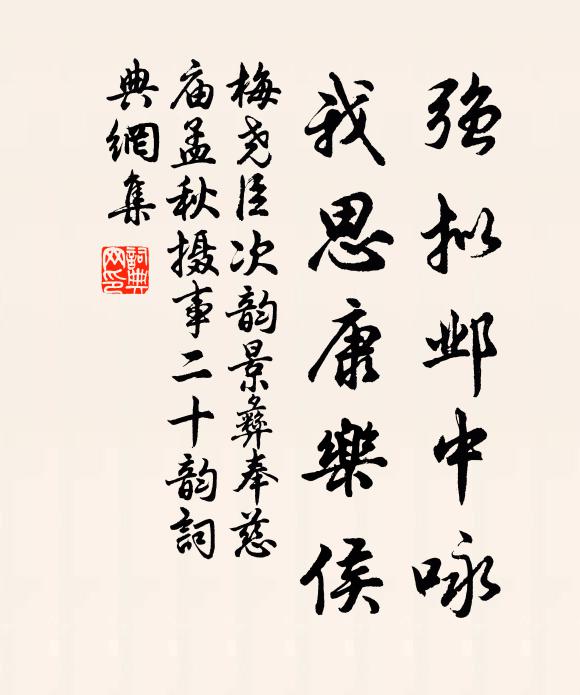 强拟邺中咏
我思康樂侯
梅尧臣次韵景彝奉慈
庙孟秋摄事二十韵詞
典網集
詞典
网印